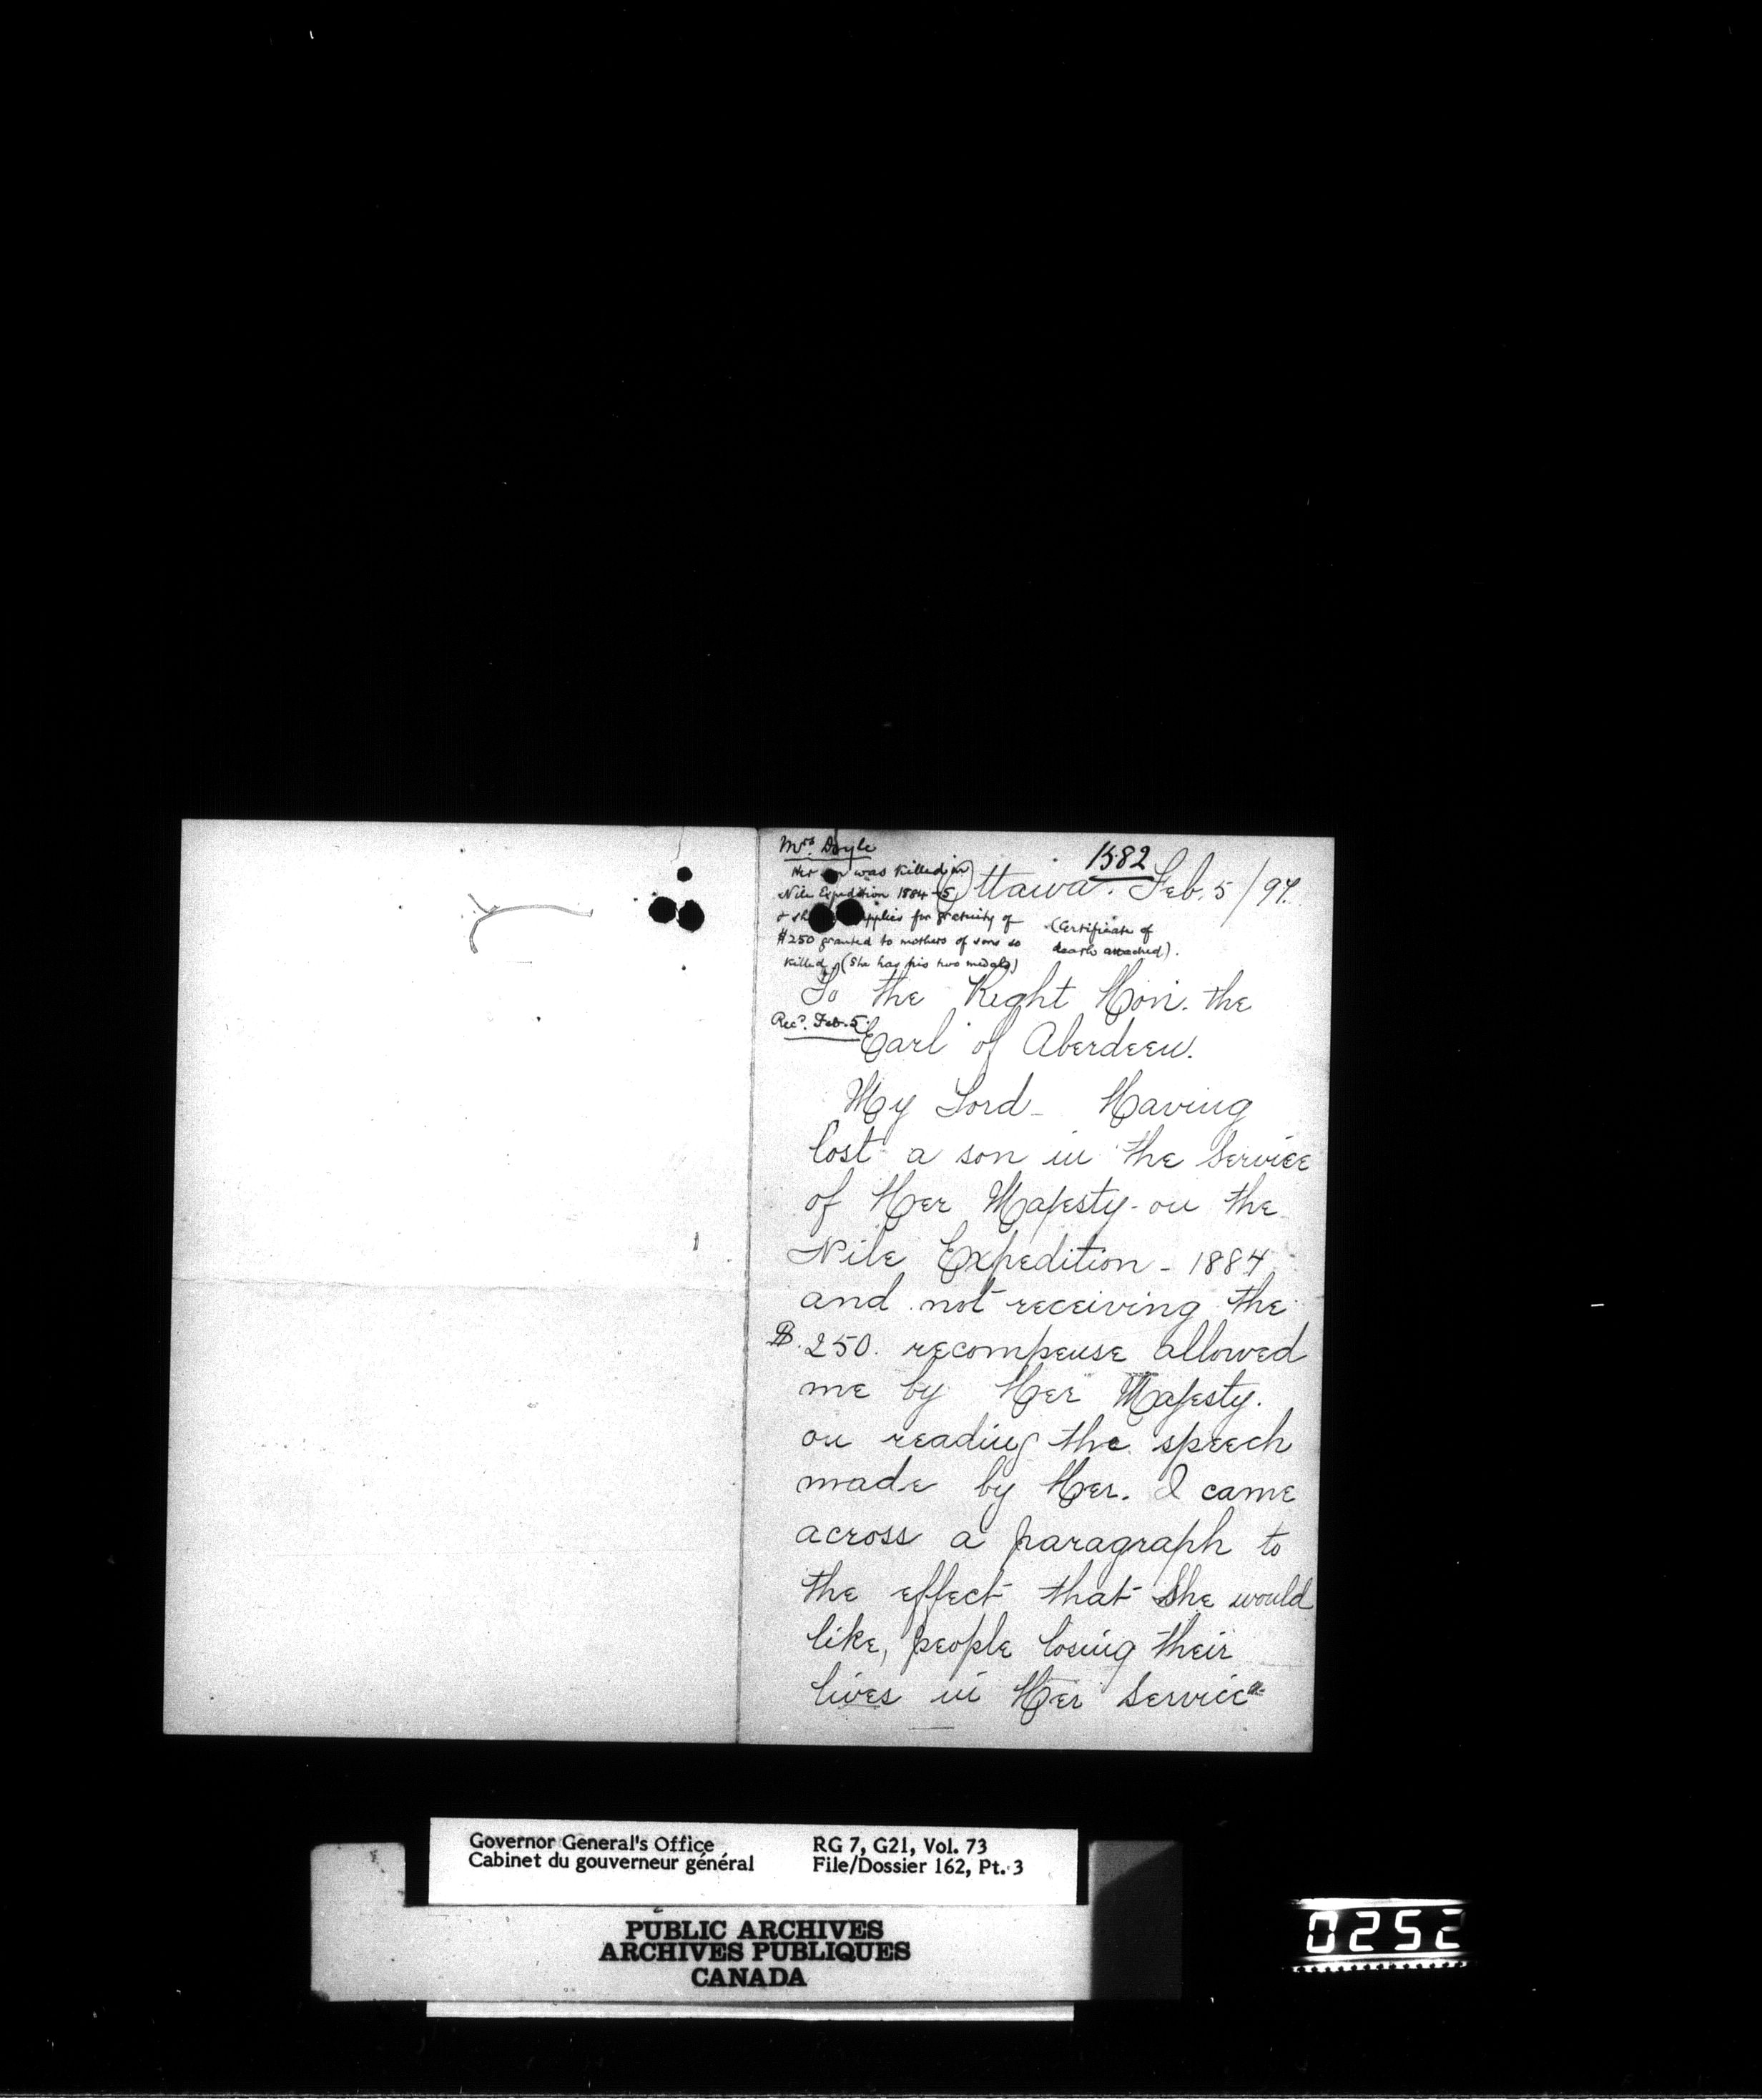 Mrs. Doyle
1582
Her son was killed in
Nile Expedition 1884-5
Ottawa. Feb. 5/97.
& she applies for gratuity of
$250 granted to mothers of sons so
killed (She has his two medals)
(Certificate of
death attached).
To the Right Hon. the
Recd. Feb. 5.
Earl of Aberdeen.
My Lord - Having
lost a son in the Service
of Her Majesty - on the
Nile Expedition - 1884
and not receiving the
$. 250. recompense allowed
me by Her Majesty.
on reading the speech
made by Her. I came
across a paragraph to
the effect that She would
like, people losing their
lives in Her Service
Governor General's Office
Cabinet du gouverneur général
RG 7, G21, Vol. 73
File/Dossier 162, Pt. 3
PUBLIC ARCHIVES
ARCHIVES PUBLIQUES
CANADA
0252